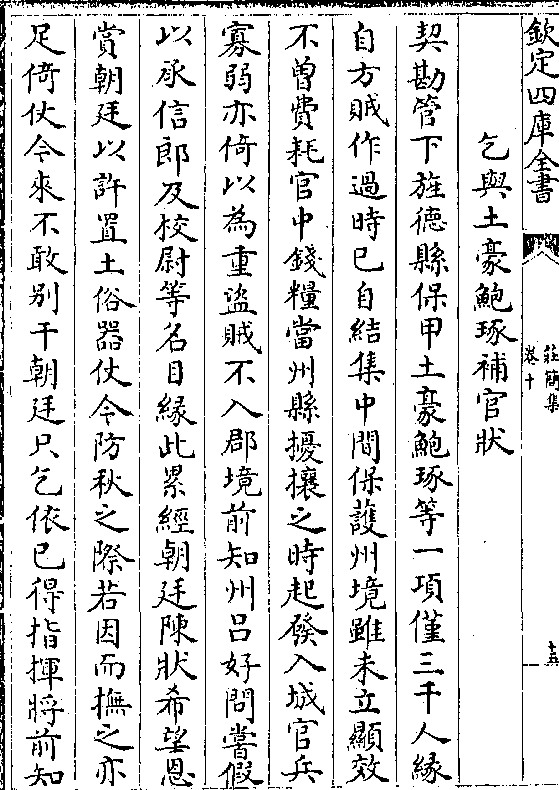 欽定四庫全書
莊簡集
卷十
十五
乞與土豪鮑琢補官狀
契勘管下旌德縣保甲土豪鮑琢等一項僅三千人緣
自方賊作過時已自結集中間保護州境雖未立顯效
不曾費耗官中錢糧當州縣擾攘之時起發入城官兵
寡弱亦倚以為重盜賊不入郡境前知州吕好問嘗假
以承信郎及校尉等名目緣此累經朝廷陳狀希望恩
賞朝廷以許置土俗器仗今防秋之際若因而撫之亦
足倚仗今來不敢别干朝廷只乞依已得指揮將前知